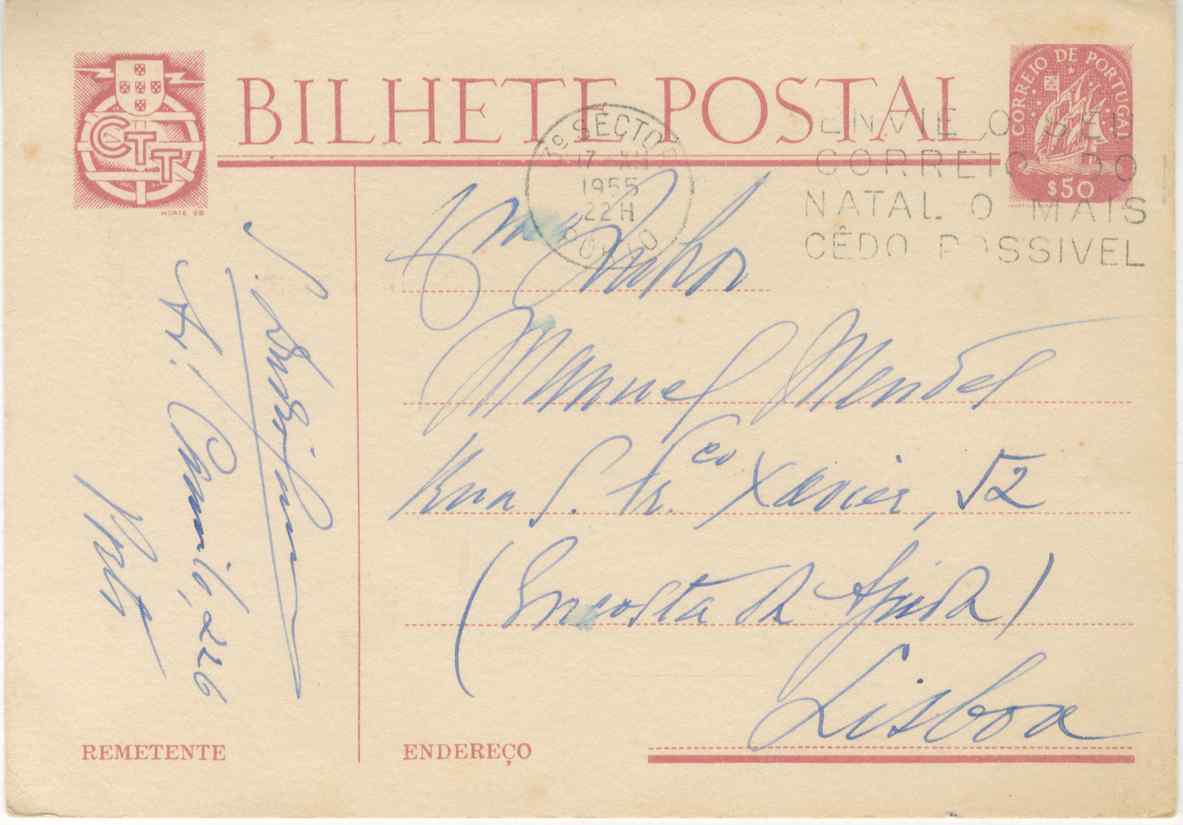 BILHETE POSTAL
CTT
CORREIO DE PORTUGAL
$50
3º SÉCTOR
1955
22H
PORTO
ENVIE O SEU
CORREIO DO
NATAL O MAIS
CÊDO POSSIVEL
Senhor
Manuel Mendes
Rua S. Fr.co Xavier, 52
(Encosta da Ajuda)
Lisboa
Av. Camilo, 226
Porto
REMETENTE
ENDEREÇO